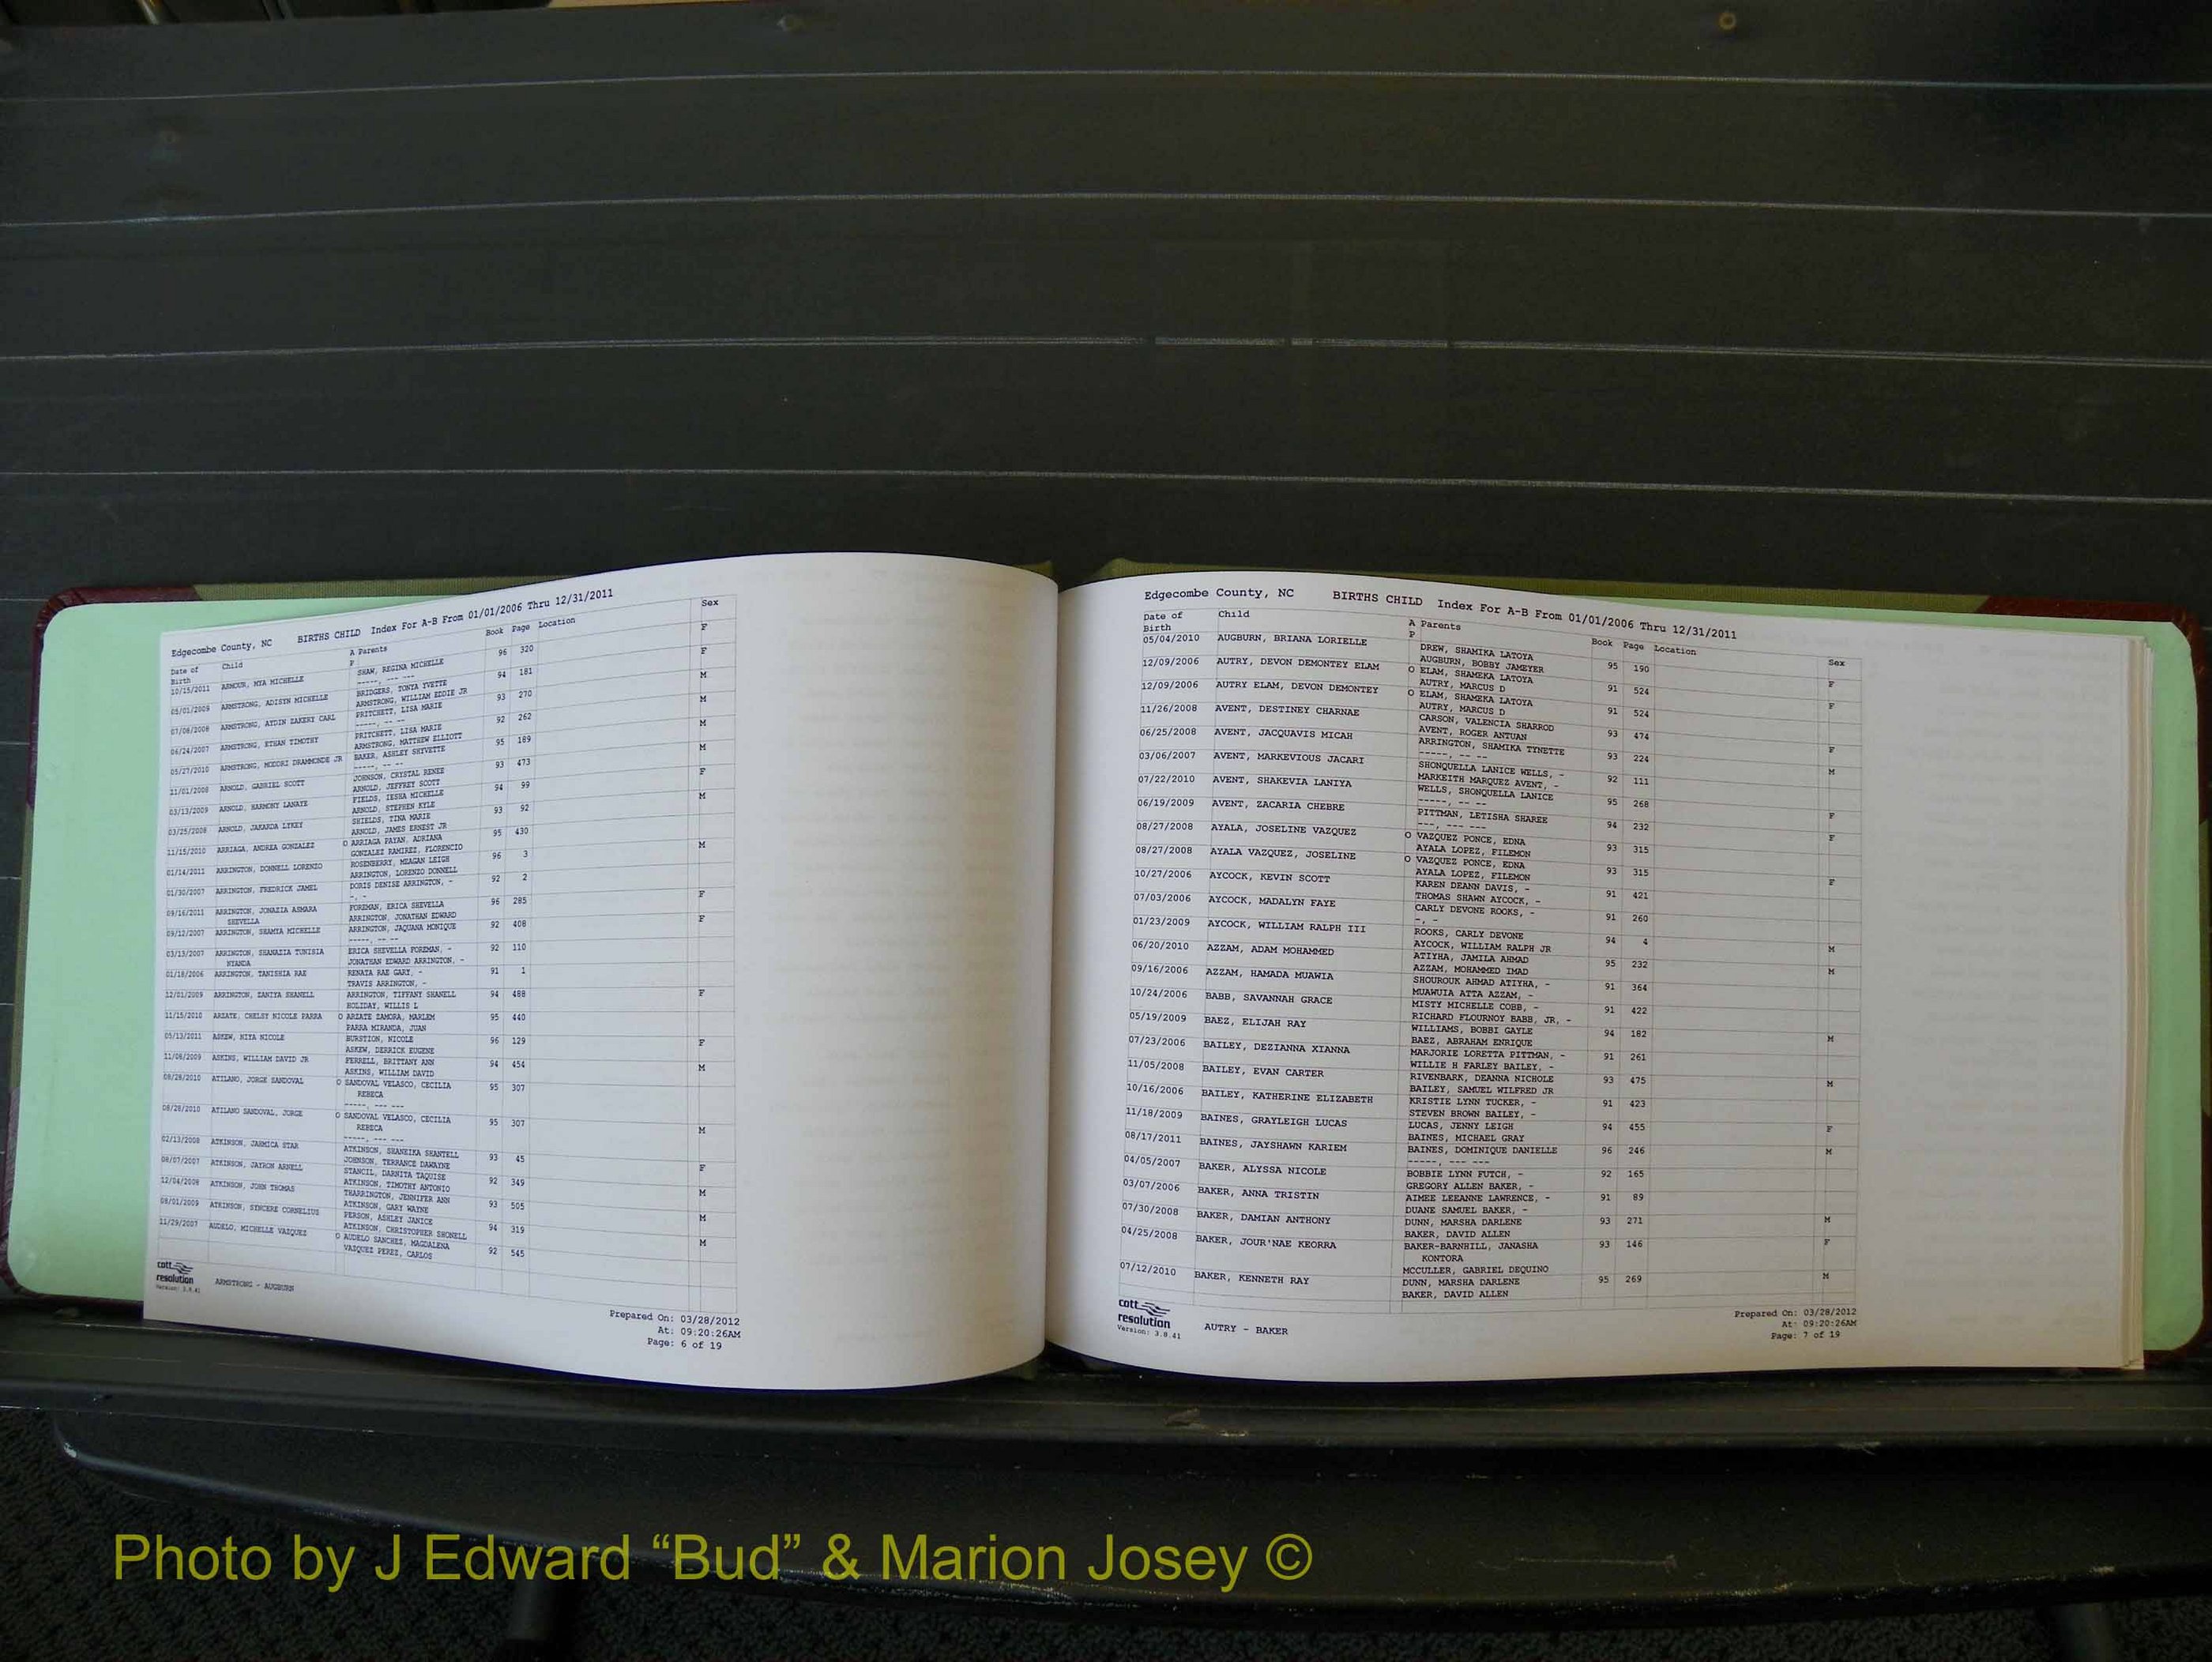 Edgecombe County, NC BIRTHS CHILD Index For A-B From 01/01/2006 Thru 12/31/2011
Date of Birth Child A P Parents Book Page Location Sex
10/15/2011 ARMOUR, MYA MICHELLE SHAW, REGINA MICHELLE 96 320 F
-----, --- ---
05/01/2009 ARMSTRONG, ADISYN MICHELLE BRIDGERS, TONYA YVETTE 94 181 F
ARMSTRONG, WILLIAM EDDIE JR
07/08/2008 ARMSTRONG, AYDIN ZAKERY CARL PRITCHETT, LISA MARIE 93 270 M
-----, -- --
06/24/2007 ARMSTRONG, ETHAN TIMOTHY PRITCHETT, LISA MARIE 92 262 M
ARMSTRONG, MATTHEW ELLIOTT
05/27/2010 ARMSTRONG, MODDRI DRAMMONDE JR BAKER, ASHLEY SHYVETTE 95 189 M
-----, -- --
11/01/2008 ARNOLD, GABRIEL SCOTT JOHNSON, CRYSTAL RENEE 93 473 M
ARNOLD, JEFFREY SCOTT
03/13/2009 ARNOLD, HARMONY LANAYE FIELDS, IESHA MICHELLE 94 99 F
ARNOLD, STEPHEN KYLE
03/25/2008 ARNOLD, JAKARDA LYKEY SHIELDS, TINA MARIE 93 92 M
ARNOLD, JAMES ERNEST JR
11/15/2010 ARRIAGA, ANDREA GONZALEZ O ARRIAGA PAYAN, ADRIANA 95 430
GONZALEZ RAMIREZ, FLORENCIO
01/14/2011 ARRINGTON, DONNELL LORENZO ROSENBERRY, MEAGAN LEIGH 96 3 M
ARRINGTON, LORENZO DONNELL
01/30/2007 ARRINGTON, FREDRICK JAMEL DORIS DENISE ARRINGTON, - 92 2
-, -
09/16/2011 ARRINGTON, JONAZIA ASMARA FOREMAN, ERICA SHEVELLA 96 285 F
SHEVELLA ARRINGTON, JONATHAN EDWARD
09/12/2007 ARRINGTON, SHAMYA MICHELLE ARRINGTON, JAQUANA MONIQUE 92 408 F
-----, -- --
03/13/2007 ARRINGTON, SHANAZIA TUNISIA ERICA SHEVELLA FOREMAN, - 92 110
NYANDA JONATHAN EDWARD ARRINGTON, -
01/18/2006 ARRINGTON, TANISHIA RAE RENATA RAE GARY, - 91 1
TRAVIS ARRINGTON, -
12/01/2009 ARRINGTON, ZANIYA SHANELL ARRINGTON, TIFFANY SHANELL 94 488 F
HOLIDAY, WILLIS L
11/15/2010 ARZATE, CHELSY NICOLE PARRA O ARZATE ZAMORA, MARLEM 95 440
PARRA MIRANDA, JUAN
05/13/2011 ASKEW, MIYA NICOLE BURSTION, NICOLE 96 129 F
ASKEW, DERRICK EUGENE
11/08/2009 ASKINS, WILLIAM DAVID JR FERRELL, BRITTANY ANN 94 454 M
ASKINS, WILLIAM DAVID
08/28/2010 ATILANO, JORGE SANDOVAL O SANDOVAL VELASCO, CECILIA 95 307
REBECA
-----, --- ---
08/28/2010 ATILANO SANDOVAL, JORGE O SANDOVAL VELASCO, CECILIA 95 307 M
REBECA
-----, --- ---
02/13/2008 ATKINSON, JAHMICA STAR ATKINSON, SHANEIKA SHANTELL 93 45 F
JOHNSON, TERRANCE DAWAYNE
08/07/2007 ATKINSON, JAYRON ARNELL STANCIL, DARNITA TAQUISE 92 349 M
ATKINSON, TIMOTHY ANTONIO
12/04/2008 ATKINSON, JOHN THOMAS THARRINGTON, JENNIFER ANN 93 505 M
ATKINSON, GARY WAYNE
08/01/2009 ATKINSON, SYNCERE CORNELIUS PERSON, ASHLEY JANICE 94 319 M
ATKINSON, CHRISTOPHER SHONELL
11/29/2007 AUDELO, MICHELLE VAZQUEZ O AUDELO SANCHEZ, MAGDALENA 92 545
VASQUEZ PEREZ, CARLOS
cott resolution
Version: 3.8.41
ARMSTRONG - AUGBURN
Prepared On: 03/28/2012
At: 09:20:26AM
Page: 6 of 19
Edgecombe County, NC BIRTHS CHILD Index For A-B From 01/01/2006 Thru 12/31/2011
Date of Birth Child A P Parents Book Page Location Sex
05/04/2010 AUGBURN, BRIANA LORIELLE DREW, SHAMIKA LATOYA 95 190 F
AUGBURN, BOBBY JAMEYER
12/09/2006 AUTRY, DEVON DEMONTEY ELAM O ELAM, SHAMEKA LATOYA 91 524 F
AUTRY, MARCUS D
12/09/2006 AUTRY ELAM, DEVON DEMONTEY O ELAM, SHAMEKA LATOYA 91 524
AUTRY, MARCUS D
11/26/2008 AVENT, DESTINEY CHARNAE CARSON, VALENCIA SHARROD 93 474 F
AVENT, ROGER ANTUAN
06/25/2008 AVENT, JACQUAVIS MICAH ARRINGTON, SHAMIKA TYNETTE 93 224 M
-----, -- --
03/06/2007 AVENT, MARKEVIOUS JACARI SHONQUELLA LANICE WELLS, - 92 111
MARKEITH MARQUEZ AVENT, -
07/22/2010 AVENT, SHAKEVIA LANIYA WELLS, SHONQUELLA LANICE 95 268 F
-----, -- --
06/19/2009 AVENT, ZACARIA CHEBRE PITTMAN, LETISHA SHAREE 94 232 F
---, --- ---
08/27/2008 AYALA, JOSELINE VAZQUEZ O VAZQUEZ PONCE, EDNA 93 315
AYALA LOPEZ, FILEMON
08/27/2008 AYALA VAZQUEZ, JOSELINE O VAZQUEZ PONCE, EDNA 93 315 F
AYALA LOPEZ, FILEMON
10/27/2006 AYCOCK, KEVIN SCOTT KAREN DEANN DAVIS, - 91 421
THOMAS SHAWN AYCOCK, -
07/03/2006 AYCOCK, MADALYN FAYE CARLY DEVONE ROOKS, - 91 260
-, -
01/23/2009 AYCOCK, WILLIAM RALPH III ROOKS, CARLY DEVONE 94 4 M
AYCOCK, WILLIAM RALPH JR
06/20/2010 AZZAM, ADAM MOHAMMED ATIYHA, JAMILA AHMAD 95 232 M
AZZAM, MOHAMMED IMAD
09/16/2006 AZZAM, HAMADA MUAWIA SHOUROUK AHMAD ATIYHA, - 91 364
MUAWUIA ATTA AZZAM, -
10/24/2006 BABB, SAVANNAH GRACE MISTY MICHELLE COBB, - 91 422
RICHARD FLOURNOY BABB, JR, -
05/19/2009 BAEZ, ELIJAH RAY WILLIAMS, BOBBI GAYLE 94 182 M
BAEZ, ABRAHAM ENRIQUE
07/23/2006 BAILEY, DEZIANNA XIANNA MARJORIE LORETTA PITTMAN, - 91 261
WILLIE H FARLEY BAILEY, -
11/05/2008 BAILEY, EVAN CARTER RIVENBARK, DEANNA NICHOLE 93 475 M
BAILEY, SAMUEL WILFRED JR
10/16/2006 BAILEY, KATHERINE ELIZABETH KRISTIE LYNN TUCKER, - 91 423
STEVEN BROWN BAILEY, -
11/18/2009 BAINES, GRAYLEIGH LUCAS LUCAS, JENNY LEIGH 94 455 F
BAINES, MICHAEL GRAY
08/17/2011 BAINES, JAYSHAWN KARIEM BAINES, DOMINIQUE DANIELLE 96 246 M
-----, --- ---
04/05/2007 BAKER, ALYSSA NICOLE BOBBIE LYNN FUTCH, - 92 165
GREGORY ALLEN BAKER, -
03/07/2006 BAKER, ANNA TRISTIN AIMEE LEEANNE LAWRENCE, - 91 89
DUANE SAMUEL BAKER, -
07/30/2008 BAKER, DAMIAN ANTHONY DUNN, MARSHA DARLENE 93 271 M
BAKER, DAVID ALLEN
04/25/2008 BAKER, JOUR'NAE KEORRA BAKER-BARNHILL, JANASHA 93 146 F
KONTORA
MCCULLER, GABRIEL DEQUINO
07/12/2010 BAKER, KENNETH RAY DUNN, MARSHA DARLENE 95 269 M
BAKER, DAVID ALLEN
cott resolution
Version: 3.8.41
AUTRY - BAKER
Prepared On: 03/28/2012
At: 09:20:26AM
Page: 7 of 19
Photo by J Edward “Bud” & Marion Josey ©